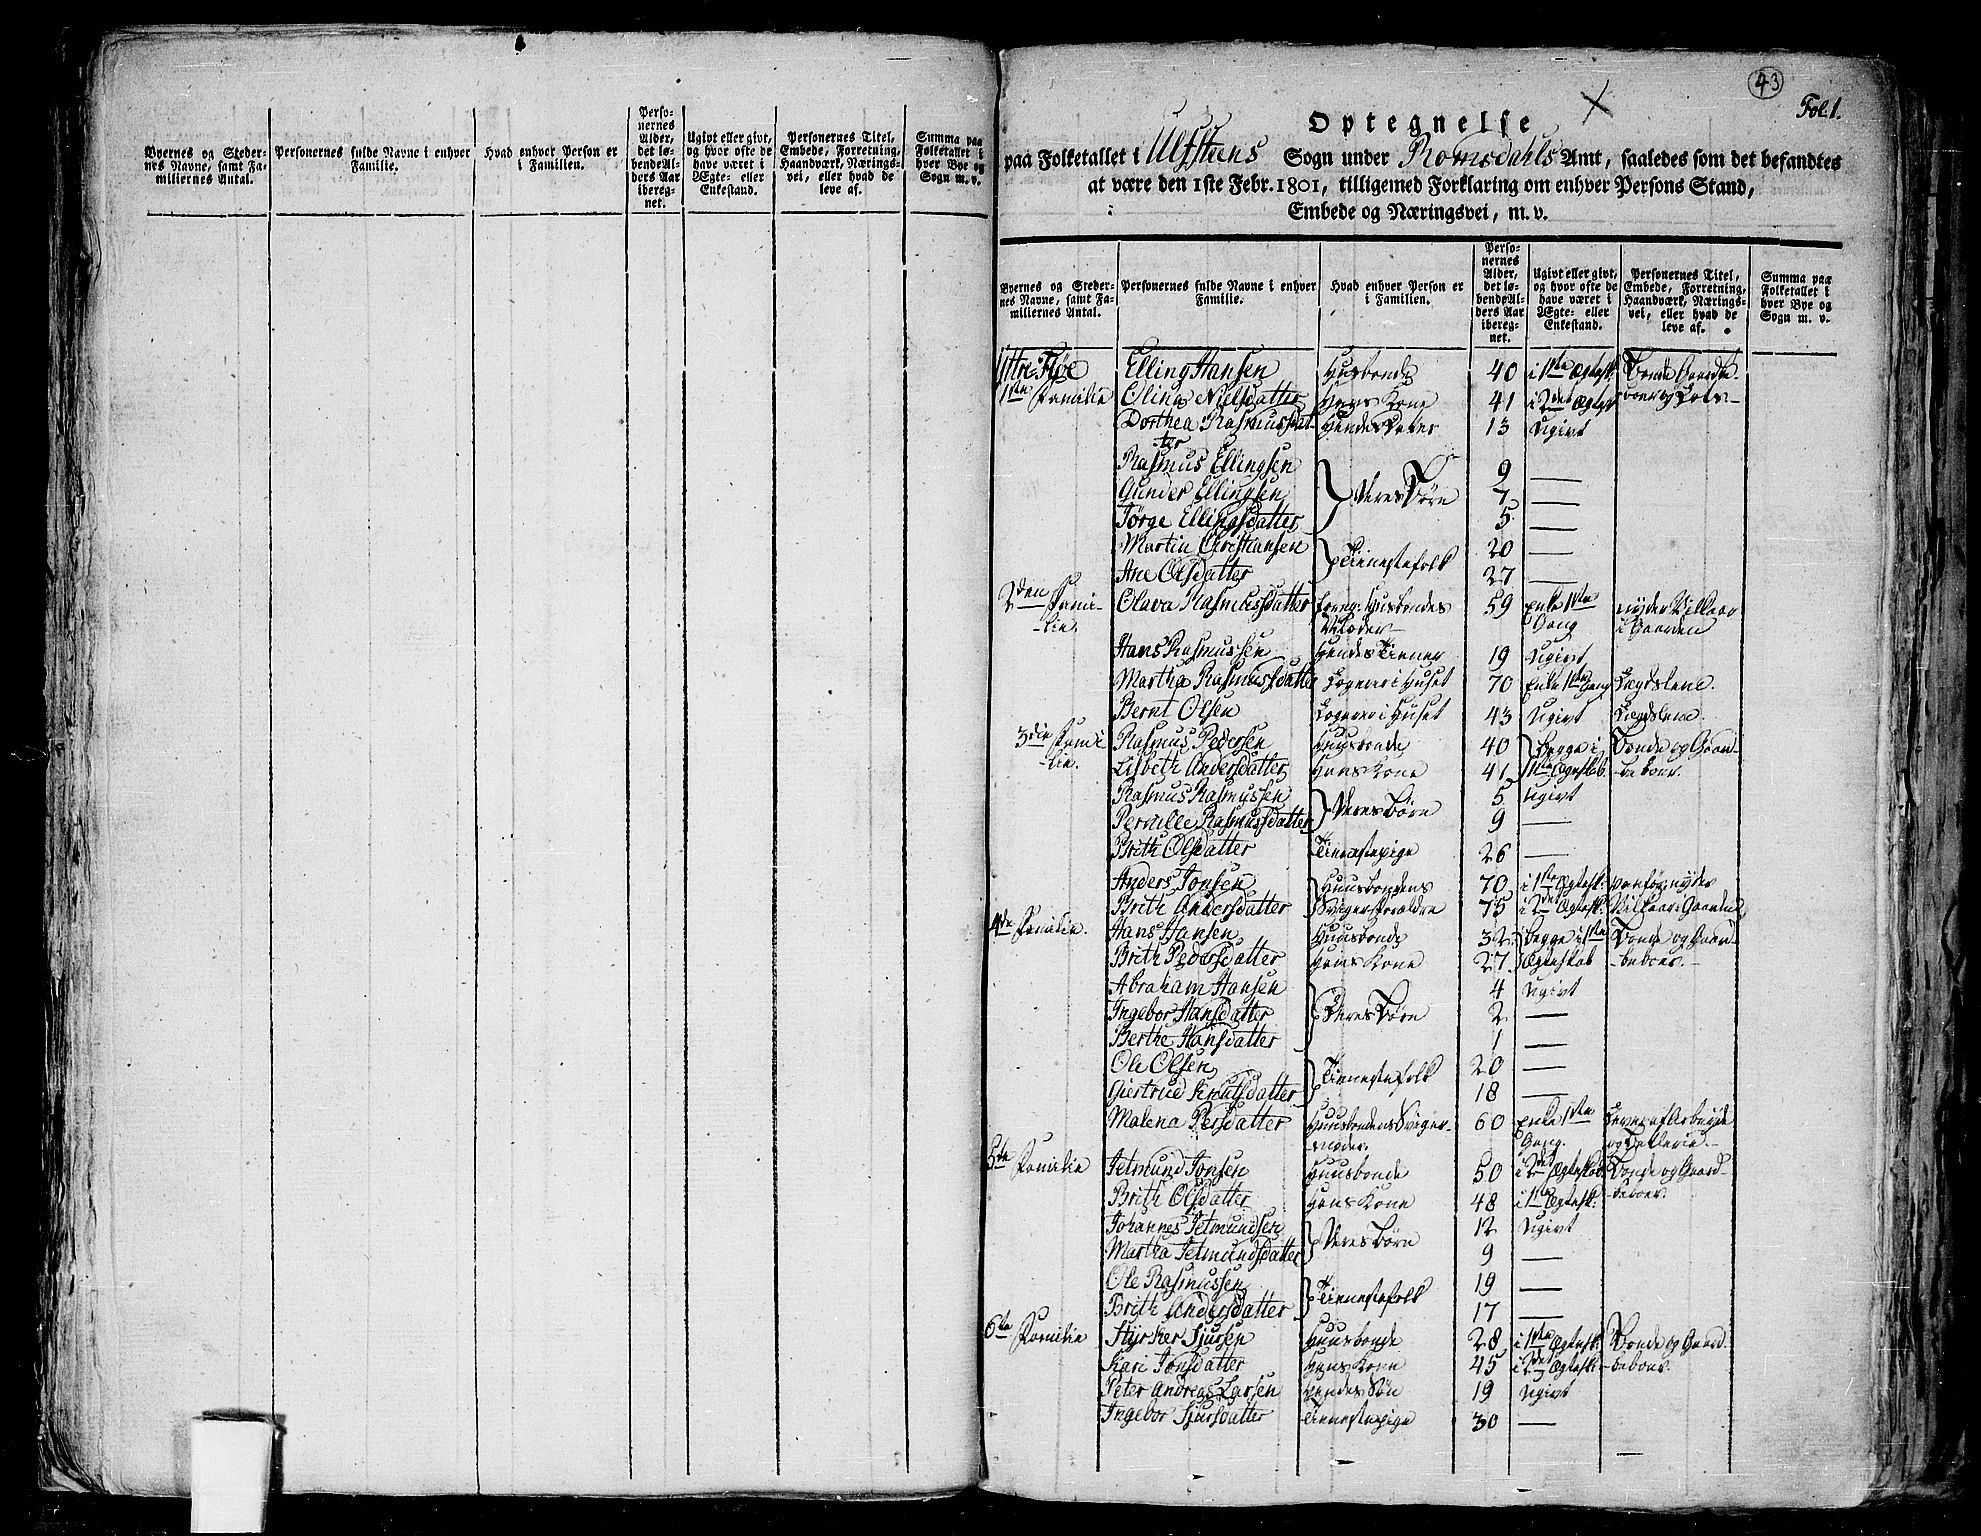 Byernes og Steder-
nes Navne, samt Fa-
miliernes Antal.
Personernes fulde Navne i enhver
Familie.
Hvad enhver Person er
i Familien.
Perso-
nernes
Alder,
det lø-
bende Al-
ders Aar
ibereg-
net.
Ugivt eller givt,
og hvor ofte de
have været i
Ægte- eller
Enkestand.
Personernes Titel,
Embede, Forretning,
Haandværk, Nærings-
vei, eller hvad de
leve af.
Summa paa
Folketallet i
hver Bye og
Sogn m. v.
43
Fol. 1.
Optegnelse
paa Folketallet i Ulfsteens Sogn under Romsdahls Amt, saaledes som det befandtes
at være den 1ste Febr. 1801, tilligemed Forklaring om enhver Persons Stand,
Embede og Næringsvei, m. v.
Byernes og Steder-
nes Navne, samt Fa-
miliernes Antal.
Personernes fulde Navne i enhver
Familie.
Hvad enhver Person er
i Familien.
Perso-
nernes
Alder,
det lø-
bende Al-
ders Aar
ibereg-
net.
Ugivt eller givt,
og hvor ofte de
have været i
Ægte- eller
Enkestand.
Personernes Titel,
Embede, Forretning,
Haandværk, Nærings-
vei, eller hvad de
leve af.
Summa paa
Folketallet i
hver Bye og
Sogn m. v.
Ittre Fløe Elling Hansen Husbonde 40 i 1ste Ægtesk. Bonde Gaardbe-
1ste Familie Olina Nielsdatter Hans Kone 41 i 2det Ægtesk boer og
Dorthea Rasmusdat- Hendes Dater 13 Ugivt
ter
Rasmus Ellingsen 9 —
Gunder Ellingsen Deres Børn 7 —
Jörge Ellingsdatter 5 —
Martin Christiansen 20 —
Ane Olsdatter Tienestefolk 27 —
2den Fami- Olava Rasmusdatter forrg. Husbondes 59 Enke 1ste nyder Vilkaar
lie. Moder Gang i Gaarden
Hans Rasmussen Hendes Tiener 19 Ugivt
Martha Rasmusdatter Logerer i Huset 70 Enke 1ste Gang Lægdslem.
Bernt Olsen Logerer i Huset 43 Ugivt Lægdslem
3die Fami- Rasmus Pedersen Huusbonde 40 begge i Bonde og Gaard-
lie. Lisbeth Andersdatter Hans Kone 41 1ste Ægteskab. beboer.
Rasmus Rasmussen 5 Ugivt
Pernille Rasmusdatter Deres Børn 9 —
Brith Olsdatter Tienestepige 26 —
Anders Jonsen Huusbondens 70 i 1ste Ægtesk: vanfør, nyder
Brith Andersdatter Svigerforældre 75 i 2det Ægtesk: Vilkaar i Gaarden
4de Familie. Hans Hansen Huusbonde 32 begge i 1ste Bonde og Gaard-
Brith Pedersdatter Hans Kone 27 Ægteskab beboer.
Abraham Hansen 4 Ugivt
Ingebor Hansdatter Deres Børn 2 —
Berthe Hansdatter 1 —
Ole Olsen 20 —
Giertrud Knutsdatter Tienestefolk 18 —
Malena Persdatter Huusbondens Sviger- 60 Enke 1ste Lever af Arbeyde
moder. Gang.
5te Familie Jetmund Jonsen Huusbonde 50 i 2det Ægteskab Bonde og Gaard-
Brith Olsdatter Hans Kone 48 i 1ste Ægtesk: beboer.
Johannes Jetmundsen 12 Ugivt
Martha Jetmundsdatter Deres Børn 9 —
Ole Rasmussen 19 —
Brith Andersdatter Tienestefolk 17 —
6te Familie Styrker Sjursen Huusbonde 28 i 1ste Ægtesk: Bonde og Gaard-
Kari Jonsdatter Hans Kone 45 i 2det Ægtesk: beboer.
Peter Andreas Larsen Hendes Søn 19 Ugivt
Ingebor Sjursdatter Tienestepige 30 —